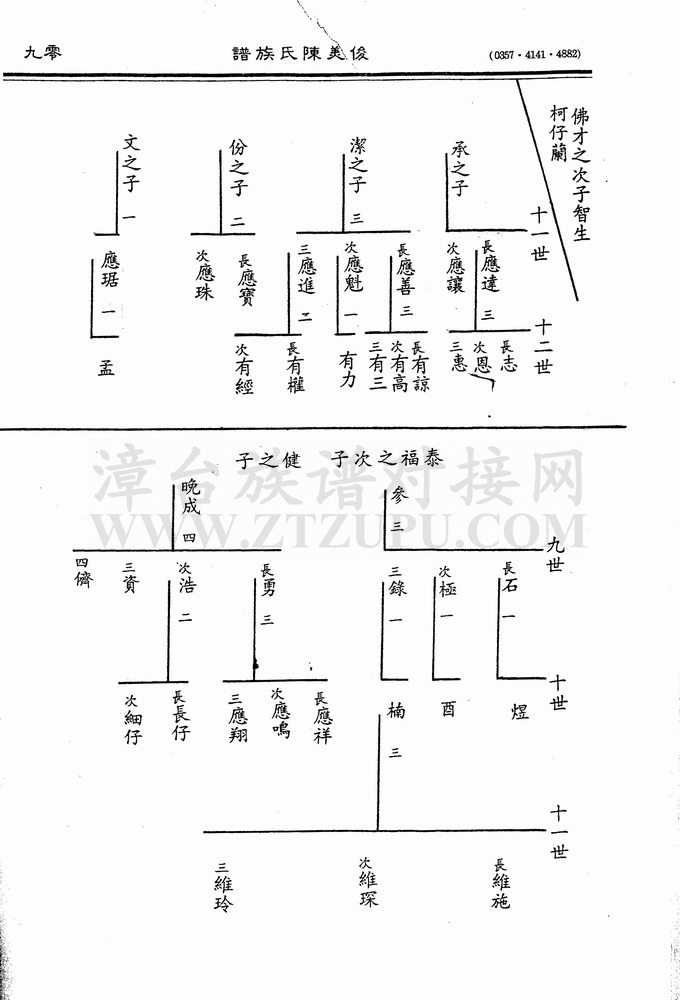 (0357·4141·4882)
俊美陳氏族譜
九零
佛才之次子智生
柯仔蘭
十一世
承之子
潔之子 三
份之子 二
文之子 一
長應達 三
次應讓
長應善 三
次應魁 一
三應進 二
長應寶
次應珠
應琚 一
十二世
長志
次恩
三惠
長有諒
次有高
三有三
有力
長有權
次有經
孟
泰福之次子 健之子
參 三
晚成 四
九世
長石 一
次極 一
三錄 一
長勇 三
次浩 二
三資
四儕
十世
煜
酉
楠 三
長應祥
次應鳴
三應翔
長長仔
次細仔
十一世
長維施
次維琛
三維玲
漳台族谱对接网
WWW.ZTZUPU.COM